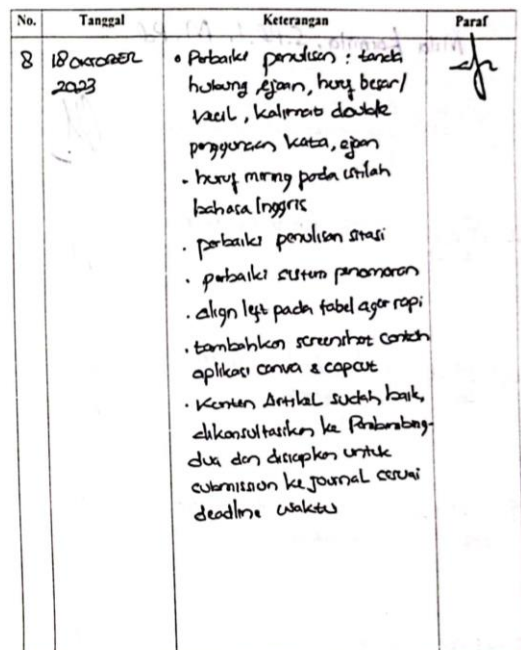 No. Tanggal Keterangan Paraf
8 18 OKTOBER 2023
• Perbaiki penulisan : tanda
hubung, ejaan, huruf besar/
kecil, kalimat double
penggunaan kata, ejaan
- huruf miring pada istilah
bahasa Inggris
. perbaiki penulisan sitasi
. perbaiki sistem penomoran
. align left pada tabel agar rapi
. tambahkan screenshot contoh
aplikasi canva & capcut
. Konten Artikel sudah baik,
dikonsultasikan ke Pembimbing-
dua dan disiapkan untuk
submission ke journal sesuai
deadline waktu